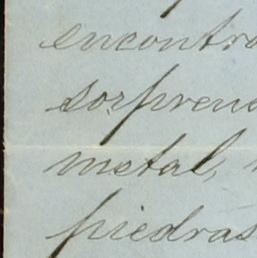 encontra
sorprend
metal,
piedras